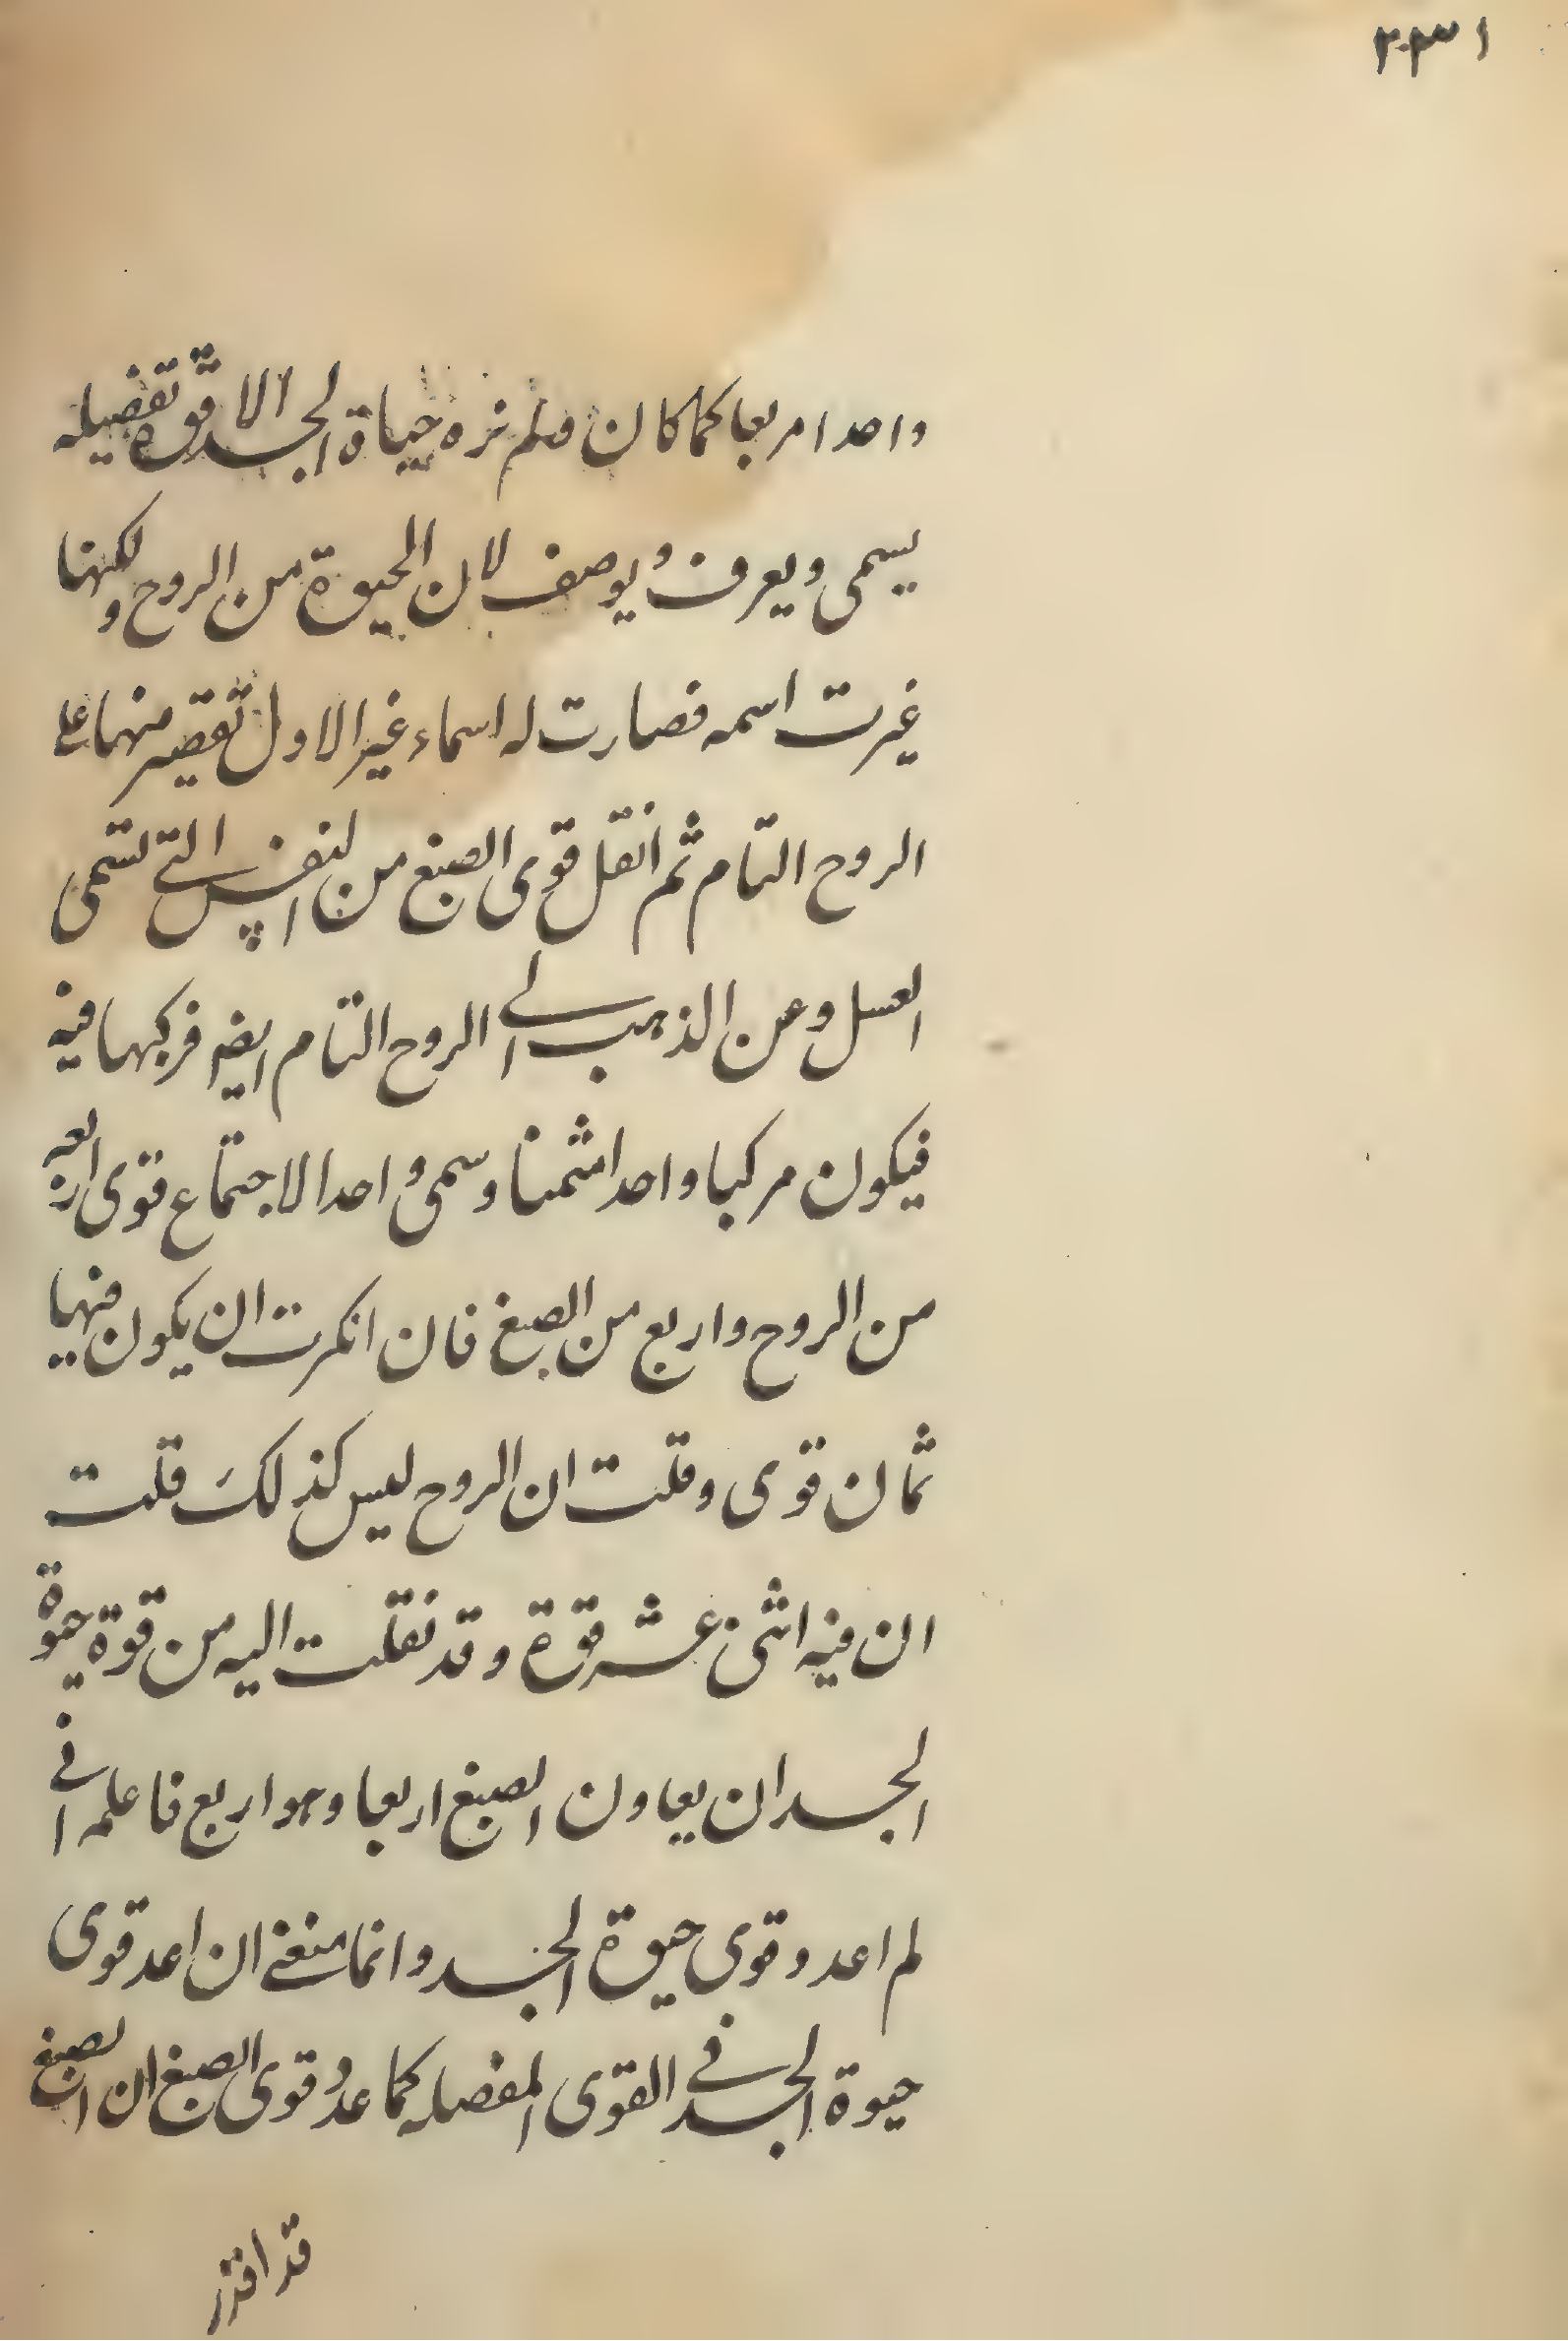 واحدا مربعا كما كان فلم نره حياة الجسد الا قوة تفصيله
يسمى ويعرف ويوصف لان الحيوة من الروح ولكنها
غيرت اسمه فصارت له اسماء غير الاول تقصير منها على
الروح التام ثم انقل قوى الصبغ من النفس التي تسمى
العسل وعن الذهب الى الروح التام ايضا فركبها فيه
فيكون مركبا واحدا مثمنا وسمى واحدا لاجتماع قوى اربعه
من الروح واربع من الصبغ فان انكرت ان يكون فيها
ثمان قوى وقلت ان الروح ليس كذلك قلت
ان فيه اثنى عشر قوة وقد نقلت اليه من قوة حيوة
الجسد ان يعاون الصبغ اربعا وهو اربع فاعلم انى
لم اعدد قوى حيوة الجسد وانما منعنى ان اعد قوى
حيوة الجسد في القوى المفصله كما عدد قوى الصبغ ان الصبغ